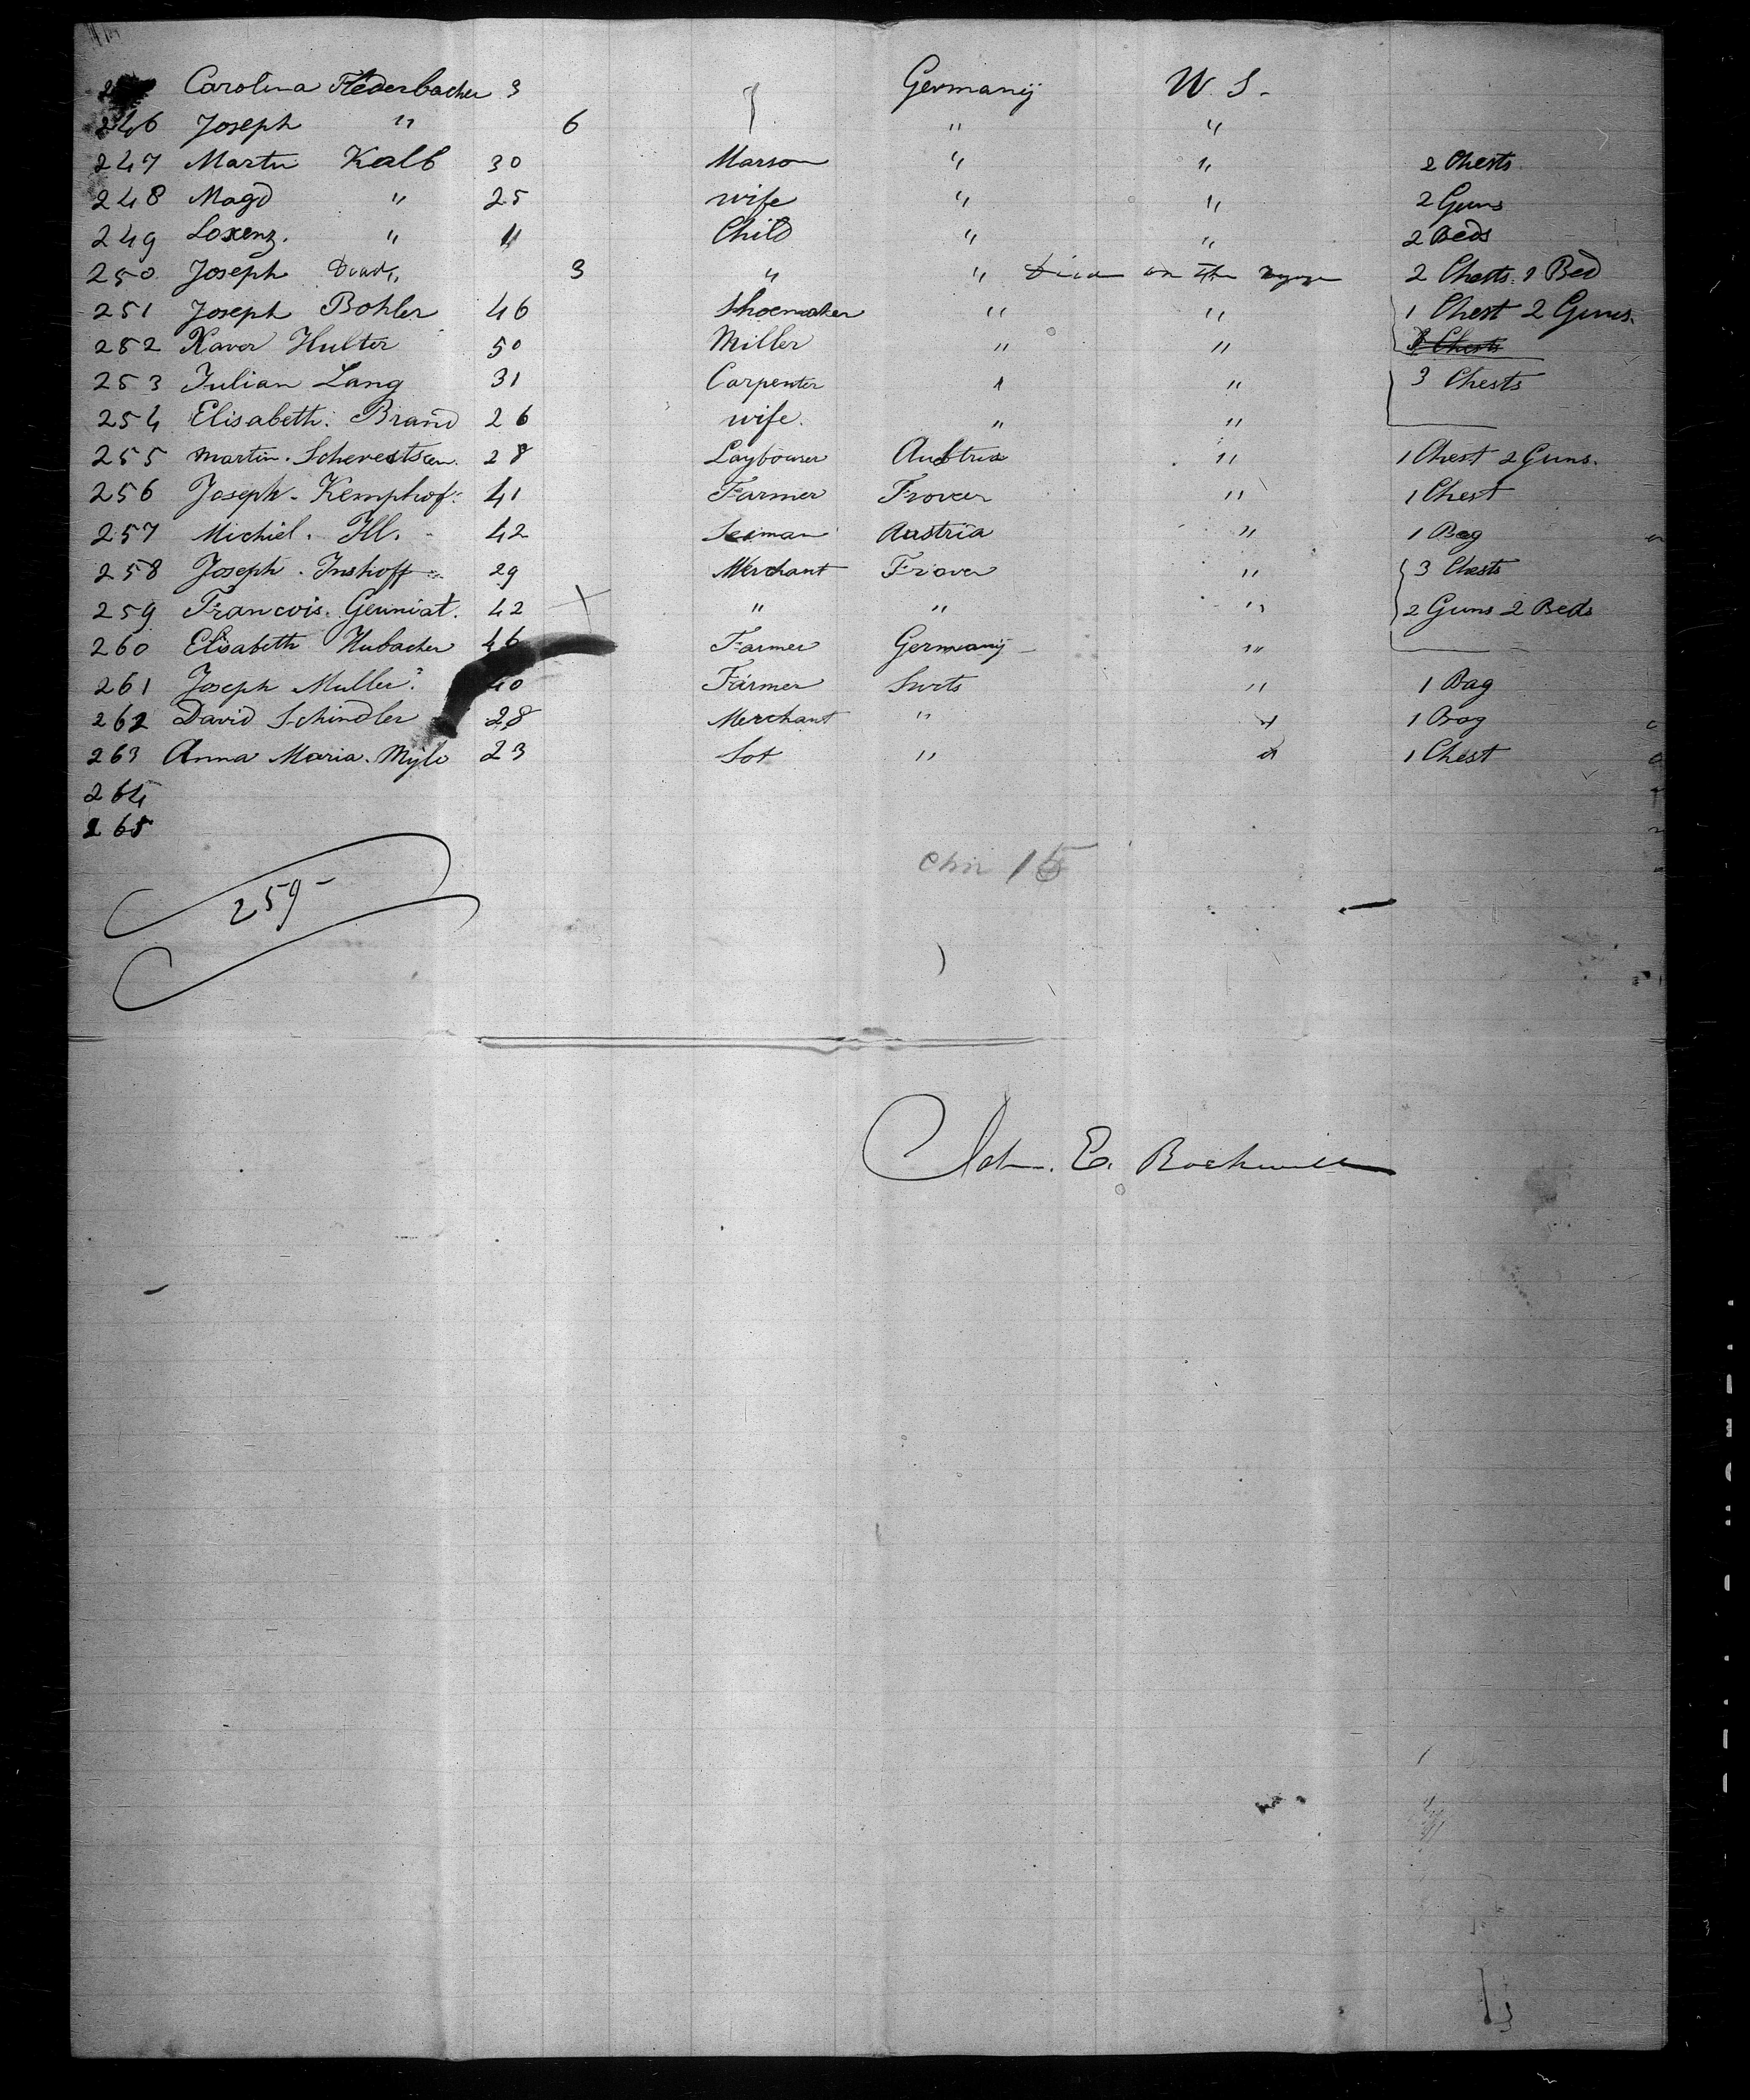 Carolina Flederbacher 3 Germanij U. S.
246 Joseph " 6 " "
247 Martin Kalb 30 Marson " " 2 Chests
248 Magd " 25 wife " " 2 Guns
249 Lorenz. " 11 Child " " 2 Beds
250 Joseph Dead, 3 " " Died on the voyage 2 Chests. 1 Bed
251 Joseph Bohler 46 Shoemaker " " 1 Chest 2 Guns.
252 Xaver Hulter 50 Miller " " Chests
253 Julian Lang 31 Carpenter " " 3 Chests
254 Elisabeth. Brand 26 wife. " "
255 Martin. 28 Austria " 1 Chest 2 Guns.
256 Joseph. Kemphof 41 Farmer " 1 Chest
257 Michiel. Ill. 42 Seaman Austria " 1 Bag
258 Joseph. Inshoff 29 Merchant " 3 Chests
259 Francois. Genniat. 42 " " " 2 Guns 2 Beds
260 Elisabeth Hubacher 46 Farmer Germanij "
261 Joseph Muller. 40 Farmer Swits " 1 Bag
262 David Schindler 28 Merchant " " 1 Bag
263 Anna Maria. 23 " " 1 Chest
264
265
259
15
E. Rockwell